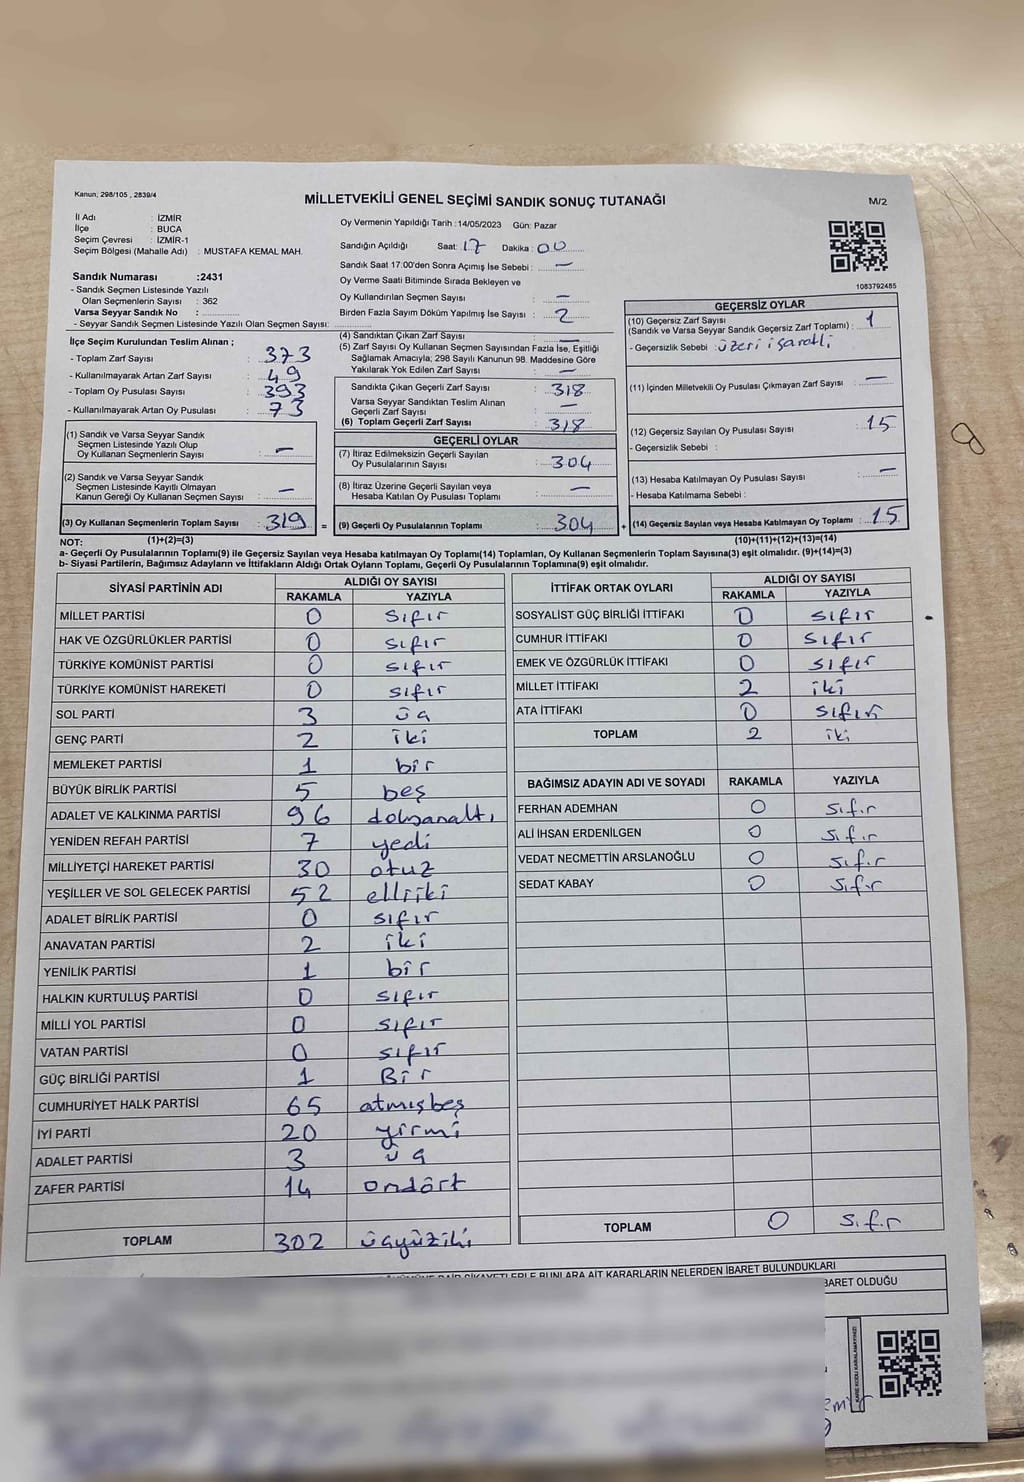 Kanun; 298/105 , 2839/4
MİLLETVEKİLİ GENEL SEÇİMİ SANDIK SONUÇ TUTANAĞI
M/2
İl Adı : İZMİR
İlçe : BUCA
Seçim Çevresi : İZMİR-1
Seçim Bölgesi (Mahalle Adı) : MUSTAFA KEMAL MAH.
Sandık Numarası :2431
- Sandık Seçmen Listesinde Yazılı
Olan Seçmenlerin Sayısı : 362
Varsa Seyyar Sandık No :
- Seyyar Sandık Seçmen Listesinde Yazılı Olan Seçmen Sayısı:
İlçe Seçim Kurulundan Teslim Alınan ;
- Toplam Zarf Sayısı : 373
- Kullanılmayarak Artan Zarf Sayısı : 49
- Toplam Oy Pusulası Sayısı : 393
- Kullanılmayarak Artan Oy Pusulası : 73
(1) Sandık ve Varsa Seyyar Sandık
Seçmen Listesinde Yazılı Olup
Oy Kullanan Seçmenlerin Sayısı : —
(2) Sandık ve Varsa Seyyar Sandık
Seçmen Listesinde Kayıtlı Olmayan
Kanun Gereği Oy Kullanan Seçmen Sayısı : —
(3) Oy Kullanan Seçmenlerin Toplam Sayısı : 319 =
Oy Vermenin Yapıldığı Tarih :14/05/2023 Gün: Pazar
Sandığın Açıldığı Saat: 17 Dakika : 00
Sandık Saat 17:00'den Sonra Açımış İse Sebebi : —
Oy Verme Saati Bitiminde Sırada Bekleyen ve
Oy Kullandırılan Seçmen Sayısı : —
Birden Fazla Sayım Döküm Yapılmış İse Sayısı : 2
(4) Sandıktan Çıkan Zarf Sayısı : —
(5) Zarf Sayısı Oy Kullanan Seçmen Sayısından Fazla İse, Eşitliği
Sağlamak Amacıyla; 298 Sayılı Kanunun 98. Maddesine Göre
Yakılarak Yok Edilen Zarf Sayısı : —
Sandıkta Çıkan Geçerli Zarf Sayısı : 318
Varsa Seyyar Sandıktan Teslim Alınan
Geçerli Zarf Sayısı : —
(6) Toplam Geçerli Zarf Sayısı : 318
GEÇERLİ OYLAR
(7) İtiraz Edilmeksizin Geçerli Sayılan
Oy Pusulalarının Sayısı : 304
(8) İtiraz Üzerine Geçerli Sayılan veya
Hesaba Katılan Oy Pusulası Toplamı : —
(9) Geçerli Oy Pusulalarının Toplamı : 304 +
1083792485
GEÇERSİZ OYLAR
(10) Geçersiz Zarf Sayısı
(Sandık ve Varsa Seyyar Sandık Geçersiz Zarf Toplamı) : 1
- Geçersizlik Sebebi : üzeri işaretli
(11) İçinden Milletvekili Oy Pusulası Çıkmayan Zarf Sayısı : —
(12) Geçersiz Sayılan Oy Pusulası Sayısı : 15
- Geçersizlik Sebebi :
(13) Hesaba Katılmayan Oy Pusulası Sayısı : —
- Hesaba Katılmama Sebebi :
(14) Geçersiz Sayılan veya Hesaba Katılmayan Oy Toplamı : 15
NOT: (1)+(2)=(3) (10)+(11)+(12)+(13)=(14)
a- Geçerli Oy Pusulalarının Toplamı(9) ile Geçersiz Sayılan veya Hesaba katılmayan Oy Toplamı(14) Toplamları, Oy Kullanan Seçmenlerin Toplam Sayısına(3) eşit olmalıdır. (9)+(14)=(3)
b- Siyasi Partilerin, Bağımsız Adayların ve İttifakların Aldığı Ortak Oyların Toplamı, Geçerli Oy Pusulalarının Toplamına(9) eşit olmalıdır.
SİYASİ PARTİNİN ADI ALDIĞI OY SAYISI
RAKAMLA YAZIYLA
MİLLET PARTİSİ 0 sıfır
HAK VE ÖZGÜRLÜKLER PARTİSİ 0 sıfır
TÜRKİYE KOMÜNİST PARTİSİ 0 sıfır
TÜRKİYE KOMÜNİST HAREKETİ 0 sıfır
SOL PARTİ 3 üç
GENÇ PARTİ 2 iki
MEMLEKET PARTİSİ 1 bir
BÜYÜK BİRLİK PARTİSİ 5 beş
ADALET VE KALKINMA PARTİSİ 96 doksanaltı
YENİDEN REFAH PARTİSİ 7 yedi
MİLLİYETÇİ HAREKET PARTİSİ 30 otuz
YEŞİLLER VE SOL GELECEK PARTİSİ 52 elliiki
ADALET BİRLİK PARTİSİ 0 sıfır
ANAVATAN PARTİSİ 2 iki
YENİLİK PARTİSİ 1 bir
HALKIN KURTULUŞ PARTİSİ 0 sıfır
MİLLİ YOL PARTİSİ 0 sıfır
VATAN PARTİSİ 0 sıfır
GÜÇ BİRLİĞİ PARTİSİ 1 Bir
CUMHURİYET HALK PARTİSİ 65 atmışbeş
İYİ PARTİ 20 yirmi
ADALET PARTİSİ 3 üç
ZAFER PARTİSİ 14 ondört
TOPLAM 302 üçyüziki
İTTİFAK ORTAK OYLARI ALDIĞI OY SAYISI
RAKAMLA YAZIYLA
SOSYALİST GÜÇ BİRLİĞİ İTTİFAKI 0 sıfır
CUMHUR İTTİFAKI 0 sıfır
EMEK VE ÖZGÜRLÜK İTTİFAKI 0 sıfır
MİLLET İTTİFAKI 2 iki
ATA İTTİFAKI 0 sıfır
TOPLAM 2 iki
BAĞIMSIZ ADAYIN ADI VE SOYADI RAKAMLA YAZIYLA
FERHAN ADEMHAN 0 sıfır
ALİ İHSAN ERDENİLGEN 0 sıfır
VEDAT NECMETTİN ARSLANOĞLU 0 sıfır
SEDAT KABAY 0 sıfır
TOPLAM 0 sıfır
KARARLARIN NELERDEN İBARET BULUNDUKLARI
OLDUĞU